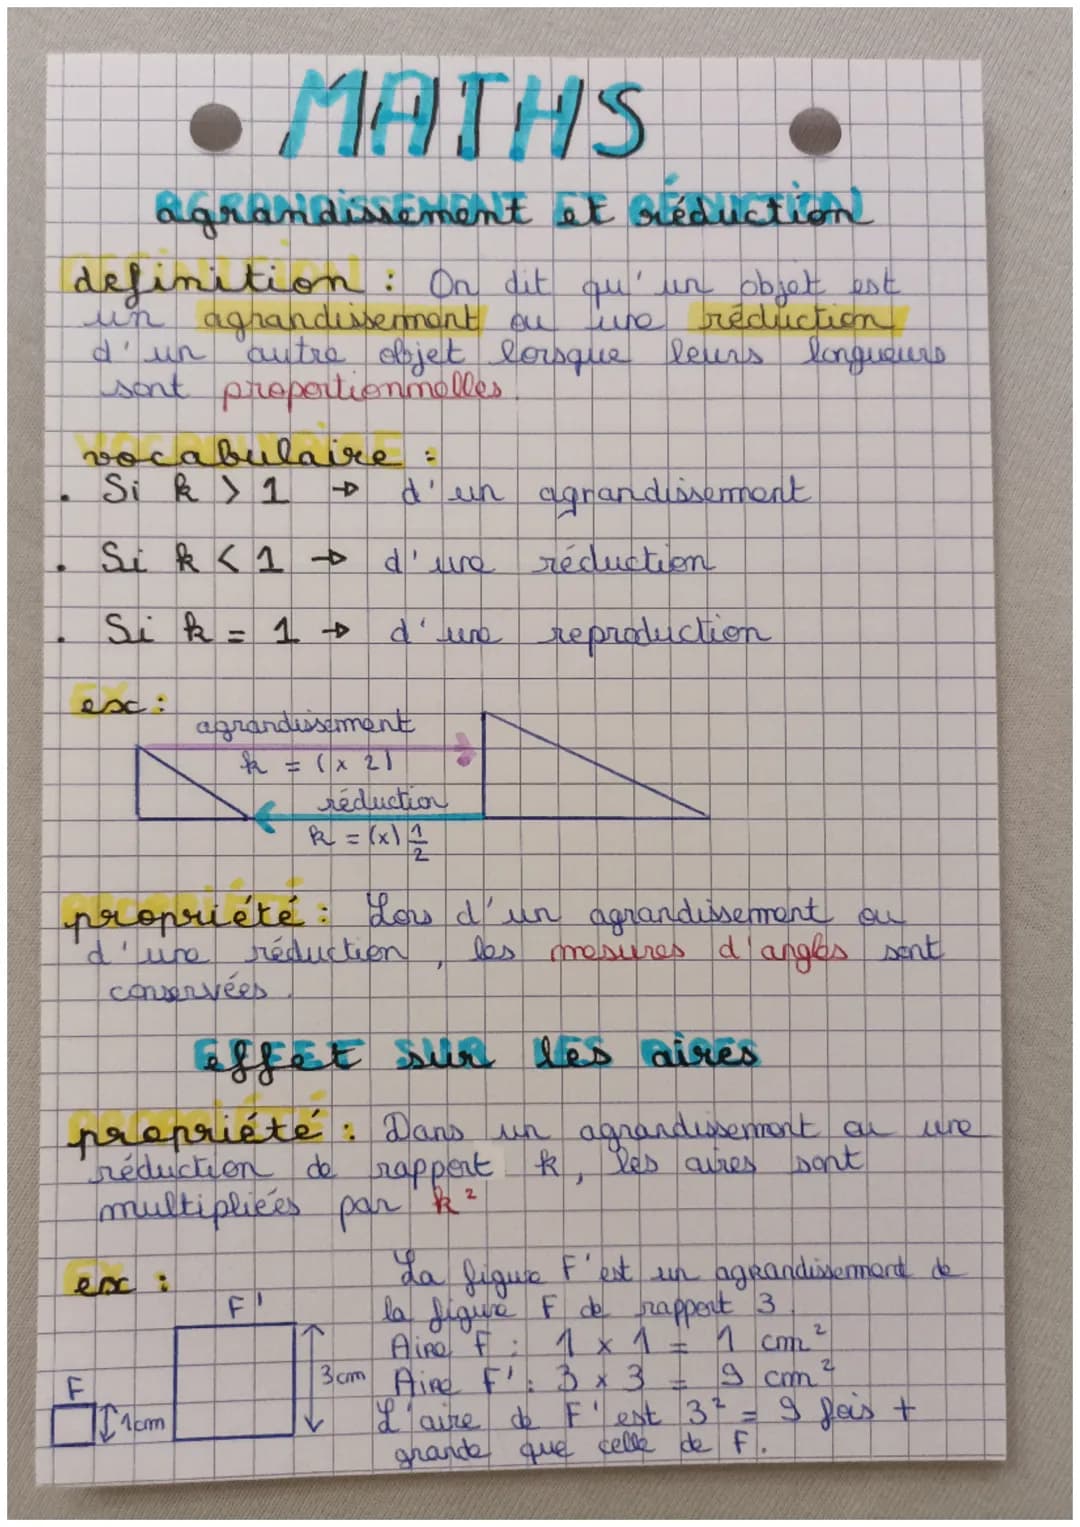 MATHS
agrandissement et réduction
definition : On dit qu'un objet est
un agrandissement ou une réduction
d'un autre objet lorsque leurs longueurs
sont proportionnelles.
vocabulaire :
. Si k > 1 → d'un agrandissement
. Si k < 1 → d'une réduction
. Si k = 1 → d'une reproduction
ex :
agrandissement
k = (x 2)
réduction
k = (x) 1/2
propriété : Lors d'un agrandissement ou
d'une réduction, les mesures d'angles sont
conservées.
effet sur les aires
propriété : Dans un agrandissement ou une
réduction de rapport k, les aires sont
multipliées par k²
ex :
La figure F' est un agrandissement de
la figure F de rapport 3.
Aire F : 1 x 1 = 1 cm²
Aire F' : 3 x 3 = 9 cm²
L'aire de F' est 3² = 9 fois +
grande que celle de F.
F'
3cm
F
1cm